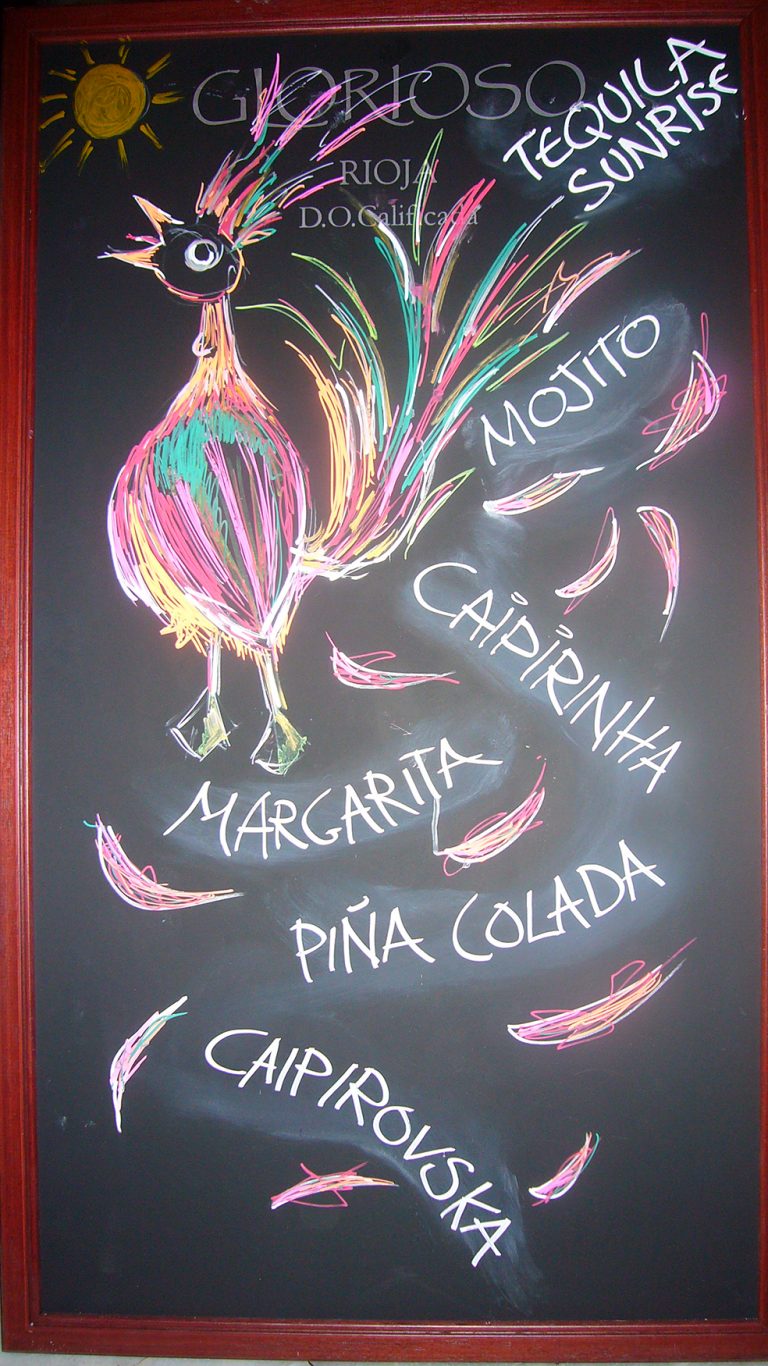 GLORIOSO
RIOJA
D.O.Calificada
TEQUILA
SUNRISE
MOJITO
CAIPIRINHA
MARGARITA
PIÑA COLADA
CAIPIROVSKA